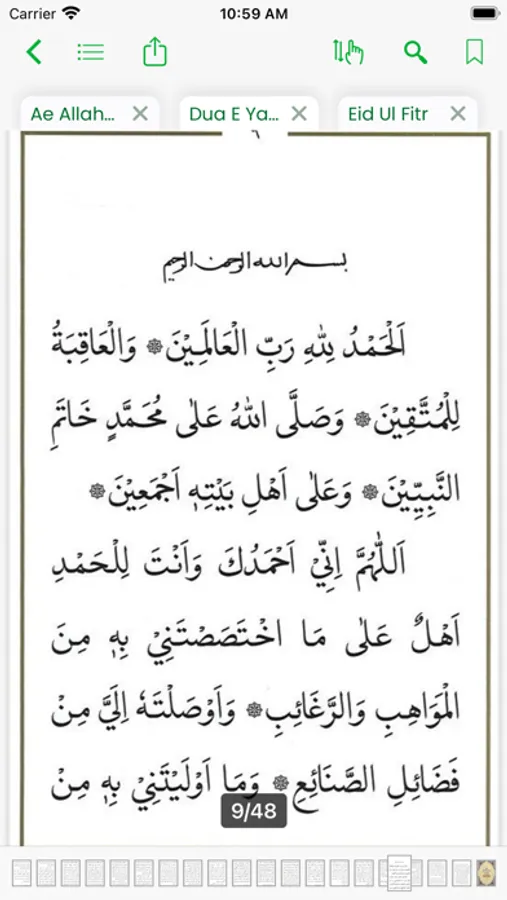 Carrier 10:59 AM
Ae Allah... Dua E Ya... Eid Ul Fitr
٦
بسم الله الرحمن الرحيم
اَلْحَمْدُ لِلّٰهِ رَبِّ الْعَالَمِيْنَ ۞ وَالْعَاقِبَةُ
لِلْمُتَّقِيْنَ ۞ وَصَلَّى اللهُ عَلٰى مُحَمَّدٍ خَاتَمِ
النَّبِيِّيْنَ ۞ وَعَلٰى اَهْلِ بَيْتِهٖ اَجْمَعِيْنَ ۞
اَللّٰهُمَّ اِنِّيْ اَحْمَدُكَ وَاَنْتَ لِلْحَمْدِ
اَهْلٌ عَلٰى مَا اخْتَصَصْتَنِيْ بِهٖ مِنَ
الْمَوَاهِبِ وَالرَّغَائِبِ ۞ وَاَوْصَلْتَهٗ اِلَيَّ مِنْ
فَضَائِلِ الصَّنَائِعِ ۞ وَمَا اَوْلَيْتَنِيْ بِهٖ مِنْ
9/48